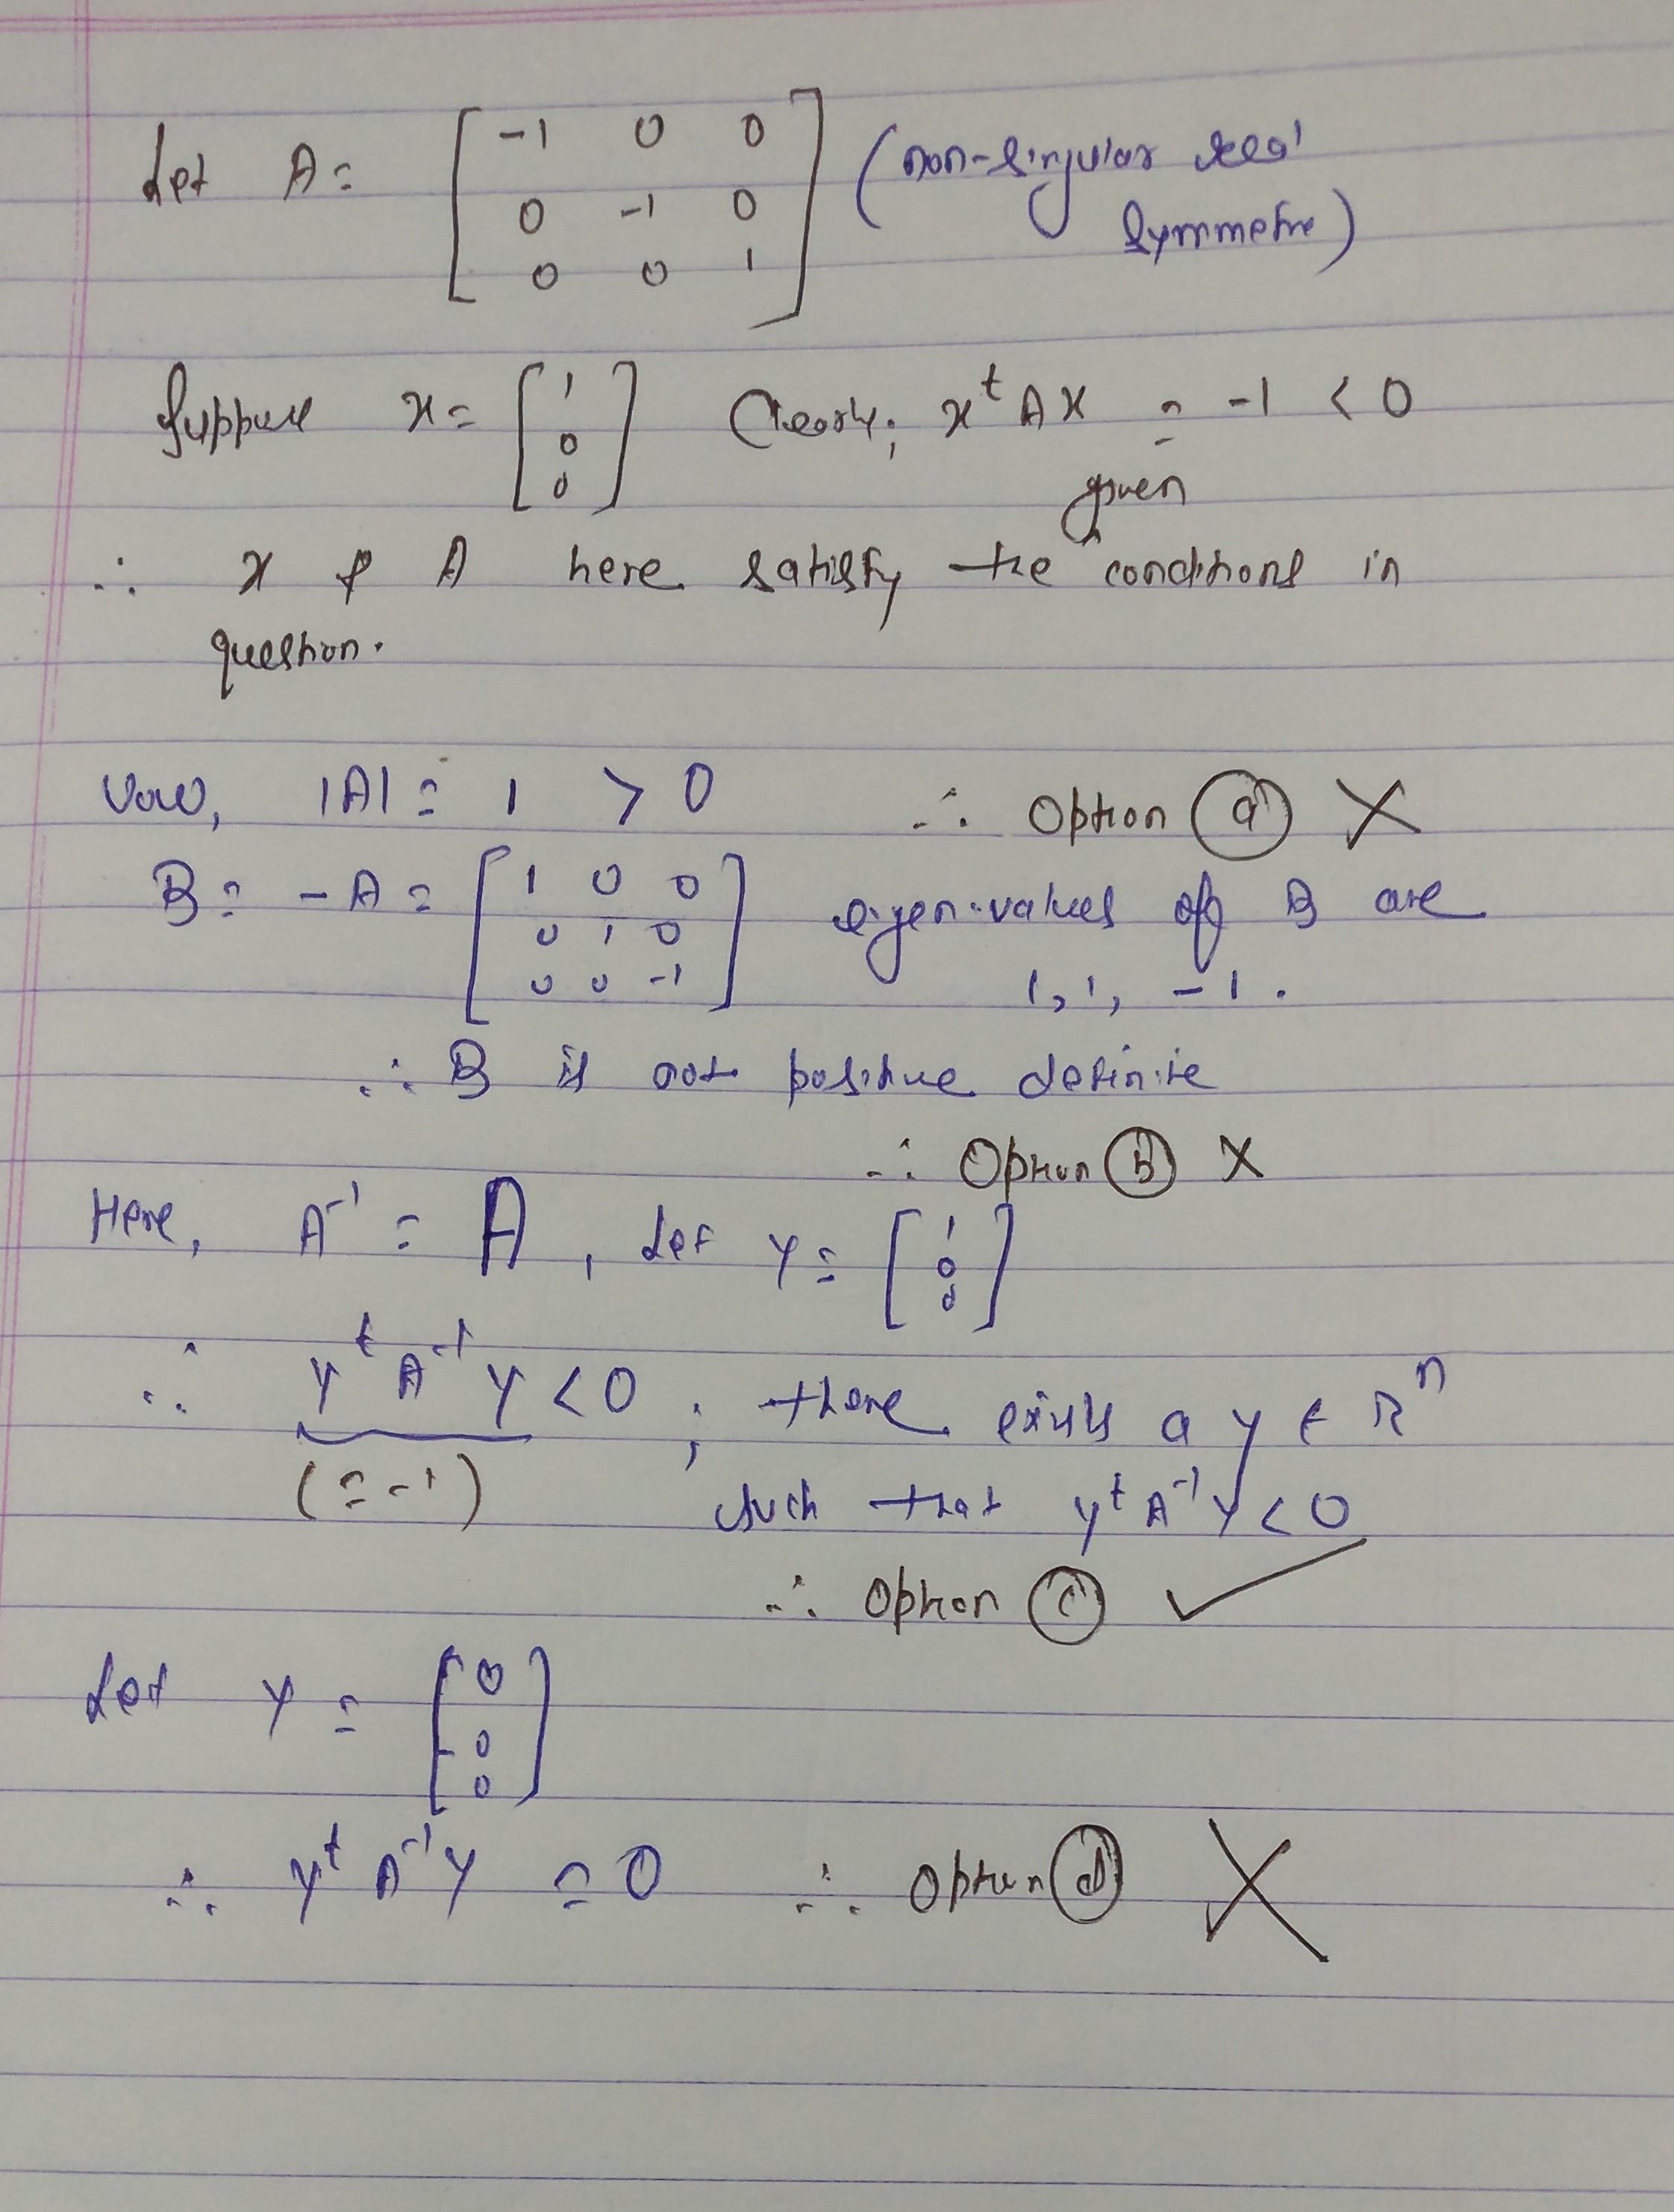 Let A = [ -1 0 0 (non-singular real
0 -1 0 symmetric)
0 0 1 ]
Suppose x = [ 1 0 0 ] Clearly; x^t A x = -1 < 0
given
∴ x & A here satisfy the conditions in
question.
Now, |A| = 1 > 0 ∴ Option (a) ✗
B = -A = [ 1 0 0 eigen-values of B are
0 1 0
0 0 -1 ] 1, 1, -1.
∴ B is not positive definite
∴ Option (b) ✗
Here, A^-1 = A, Let y = [ 1 0 0 ]
∴ y^t A^-1 y < 0 ; there exists a y ∈ R^n
(= -1) such that y^t A^-1 y < 0
∴ Option (c) ✓
Let y = [ 0
0
0 ]
∴ y^t A^-1 y = 0 ∴ Option (d) ✗